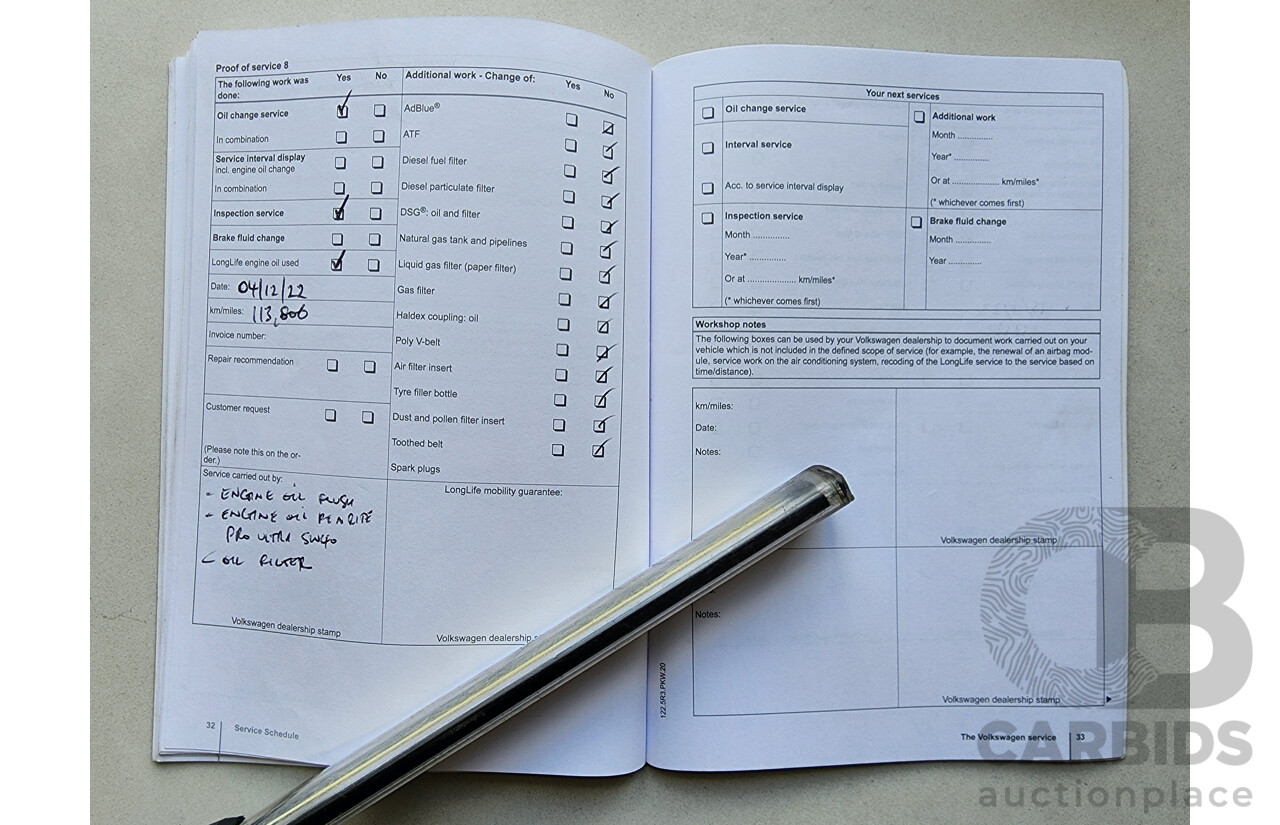 Proof of service 8
The following work was done: Yes No
Oil change service
In combination
Service interval display
incl. engine oil change
In combination
Inspection service
Brake fluid change
LongLife engine oil used
Date: 04/12/22
km/miles: 113,806
Invoice number:
Repair recommendation
Customer request
(Please note this on the or-
der.)
Service carried out by:
- ENGINE OIL FLUSH
- ENGINE OIL PENRITE
PRO ULTRA 5W40
- OIL FILTER
Volkswagen dealership stamp
Additional work - Change of: Yes No
AdBlue®
ATF
Diesel fuel filter
Diesel particulate filter
DSG®: oil and filter
Natural gas tank and pipelines
Liquid gas filter (paper filter)
Gas filter
Haldex coupling: oil
Poly V-belt
Air filter insert
Tyre filler bottle
Dust and pollen filter insert
Toothed belt
Spark plugs
LongLife mobility guarantee:
Volkswagen dealership
32 Service Schedule
Your next services
Oil change service
Interval service
Acc. to service interval display
Inspection service
Month .............
Year* .............
Or at .................... km/miles*
(* whichever comes first)
Additional work
Month .............
Year* .............
Or at .................... km/miles*
(* whichever comes first)
Brake fluid change
Month .............
Year .............
Workshop notes
The following boxes can be used by your Volkswagen dealership to document work carried out on your
vehicle which is not included in the defined scope of service (for example, the renewal of an airbag mod-
ule, service work on the air conditioning system, recoding of the LongLife service to the service based on
time/distance).
km/miles:
Date:
Notes:
Volkswagen dealership stamp
Notes:
Volkswagen dealership stamp
122.5R3.PKW.20
The Volkswagen service 33
CB
CARBIDS
auctionplace